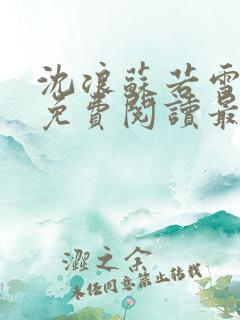 沈浪蘇若雪
免費閱讀最
澀之余
未经同意禁止转载